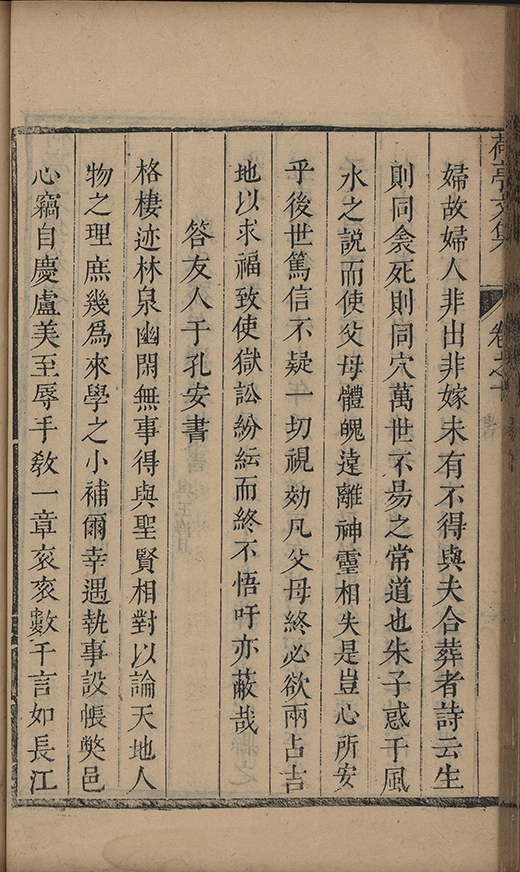 荷亭文集
卷之十
婦故婦人非出非嫁未有不得與夫合葬者詩云生
則同衾死則同穴萬世不易之常道也朱子惑于風
水之説而使父母體魄遠離神靈相失是豈心所安
乎後世篤信不疑一切視効凡父母終必欲兩占吉
地以求福致使獄訟紛紜而終不悟吁亦蔽哉
答友人于孔安書
格棲迹林泉幽閑無事得與聖賢相對以論天地人
物之理庶幾爲來學之小補爾幸遇執事設帳獘邑
心竊自慶盧美至辱手敎一章衮衮數千言如長江